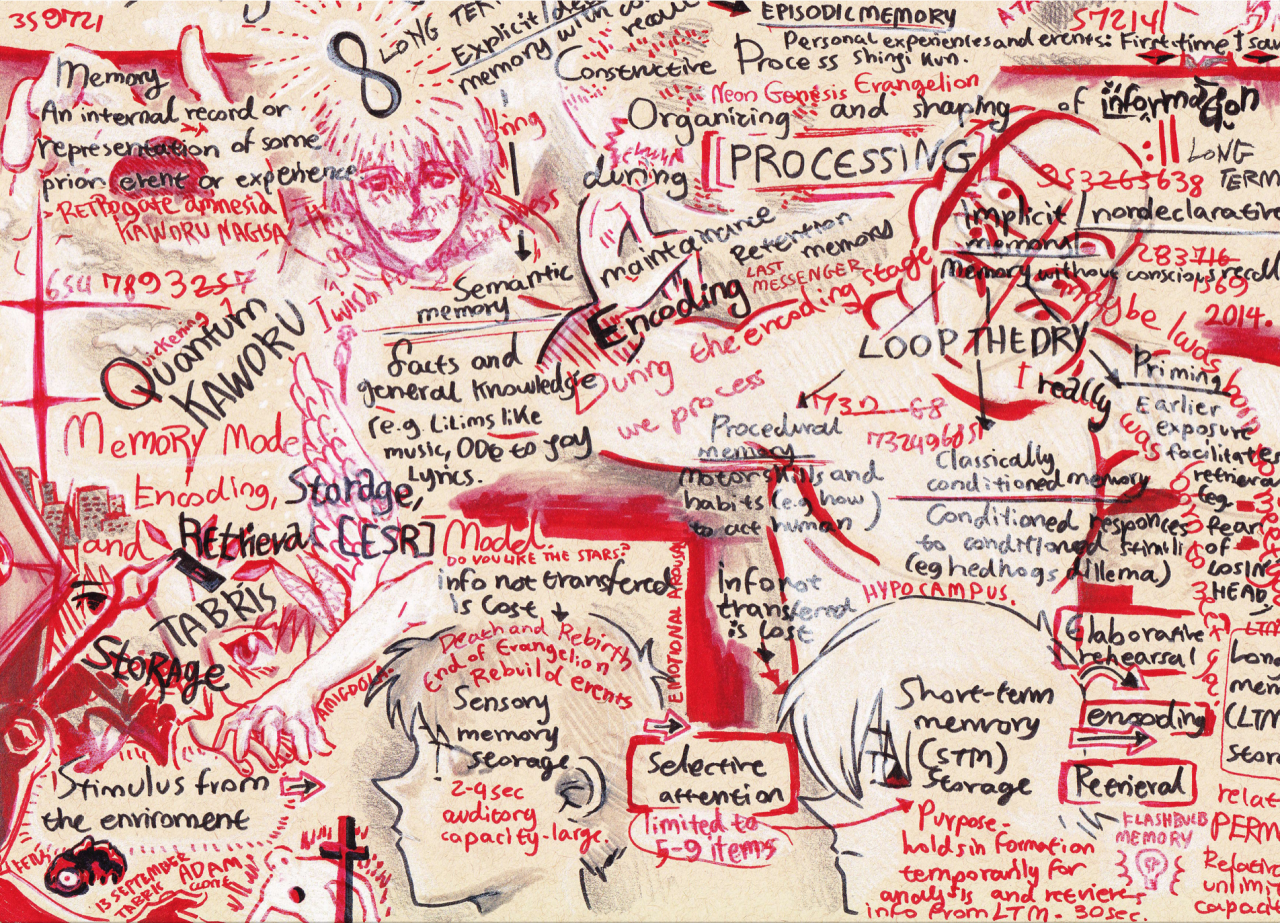 359721
Memory
An internal record or
representation of some
prior event or experience
RETROGATE amnesia
KAWORU NAGISA
654 7893257
8
LONG TER
Explicit/de
memory with co
recall
EPISODIC MEMORY
Personal experiences and events: First time I saw
Shinji Kun.
Constructive Process
Neon Genesis Evangelion
Organizing and shaping of information
during [PROCESSING]
57214
LONG
TERM
953263638
implicit/nondeclarative
memory
Memory without conscious recall
283716
1569
2014.
maintainance
Retention
memory
LAST
MESSENGER
Encoding
During the encoding stage
we process
maybe I was born
LOOP THEORY
I really
was
Semantic
memory
facts and
general knowledge
(e.g. LiLims like
music, ODE to joy
Lyrics.
I wish
Quantum
Quickening
KAWORU
Memory Mode
Encoding, Storage,
and Retrieval [ESR] Model
DO YOU LIKE THE STARS?
info not transferred
is Lost
TABRIS
STORAGE
1732 68
7732496851
Procedural
memory
Motor skills and
habits (e.g how
to act human)
Classically
conditioned memory
Conditioned responces
to conditioned stimuli
(eg hedhogs dillema)
Priming
Earlier
exposure
facilitates
retrieval
(eg.
Fear
of
LOSING
HEAD)
EMOTIONAL AROUSAL
info not
transferred
is lost
HYPOCAMPUS.
AMIGDOLA
Death and Rebirth
End of Evangelion
Rebuild events
Sensory
memory
storage
2-4sec
auditory
capacity-large.
Selective
attention
limited to
5-9 items
Short-term
memory
(STM)
Storage
Purpose-
holds information
temporarily for
analysis and retrieves
info from LTM. 30sec.
Elaborative
rehearsal
encoding
Retrieval
FLASHBULB
MEMORY
Long
mem
(LTM
stora
relat
PERM
Relativ
unlimi
capacit
Stimulus from
the enviroment
13 SEPTEMBER
TABRIS
ADAM